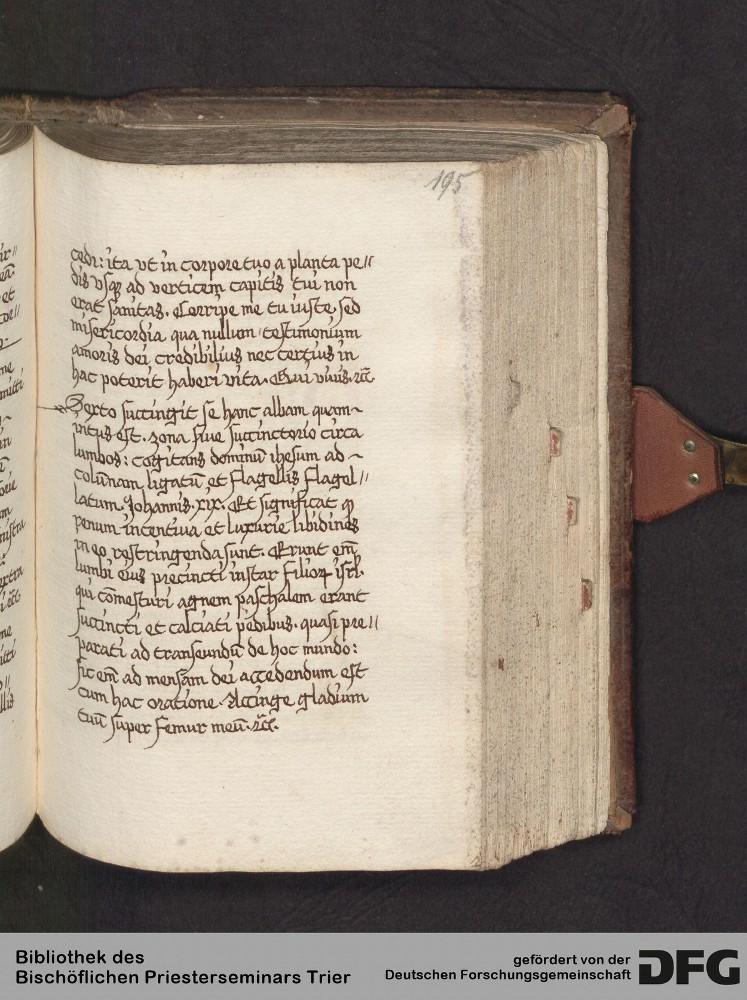 195
cedi: ita vt in corpore tuo a planta pe//
dis vsq ad verticem capitis tui non
erat sanitas. Corripe me tu iuste. sed
misericordia qua nullum testimonium
amoris dei credibilius nec certius in
hac poterit haberi vita. Qui viuis. rcc̄
Sexto succingit se hanc albam quam~
intus est. zona siue succinctorio circa
lumbos: cogitans dominū ihesum ad~
colūnam ligatū et flagellis flagel//
latum. Johannis. xix. Et significat q
renum incentiua et luxurie libidines
in eo restringenda sunt. Erunt em̄
lumbi eius precincti instar filioꝝ isrl.
qui cōmesturi agnem paschalem erant
succincti et calciati pedibus. quasi pre//
parati ad transeundū de hoc mundo:
sic em̄ ad mensam dei accedendum est
cum hac oratione. Accinge gladium
tuū super femur meū. rcc̄.
Bibliothek des
Bischöflichen Priesterseminars Trier
gefördert von der
Deutschen Forschungsgemeinschaft
DFG